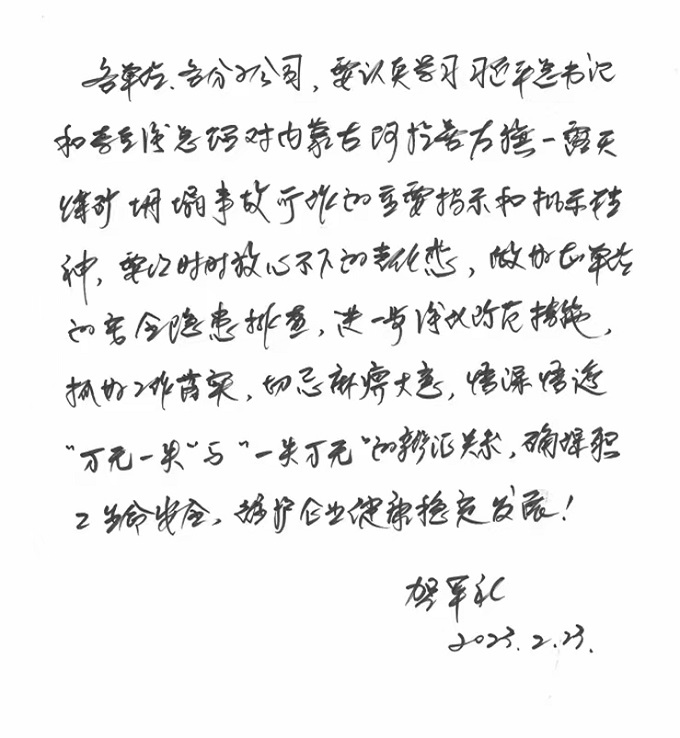 各单位、各分子公司，要认真学习习近平总书记
和李克强总理对内蒙古阿拉善左旗一露天
煤矿坍塌事故所作的重要指示和批示精
神，要以时时放心不下的责任感，做好本单位
的安全隐患排查，进一步强化防范措施，
抓好工作落实，切忌麻痹大意，悟深悟透
“万无一失”与“一失万无”的辩证关系，确保职
工生命安全，维护企业健康稳定发展！
贺军礼
2023.2.23.